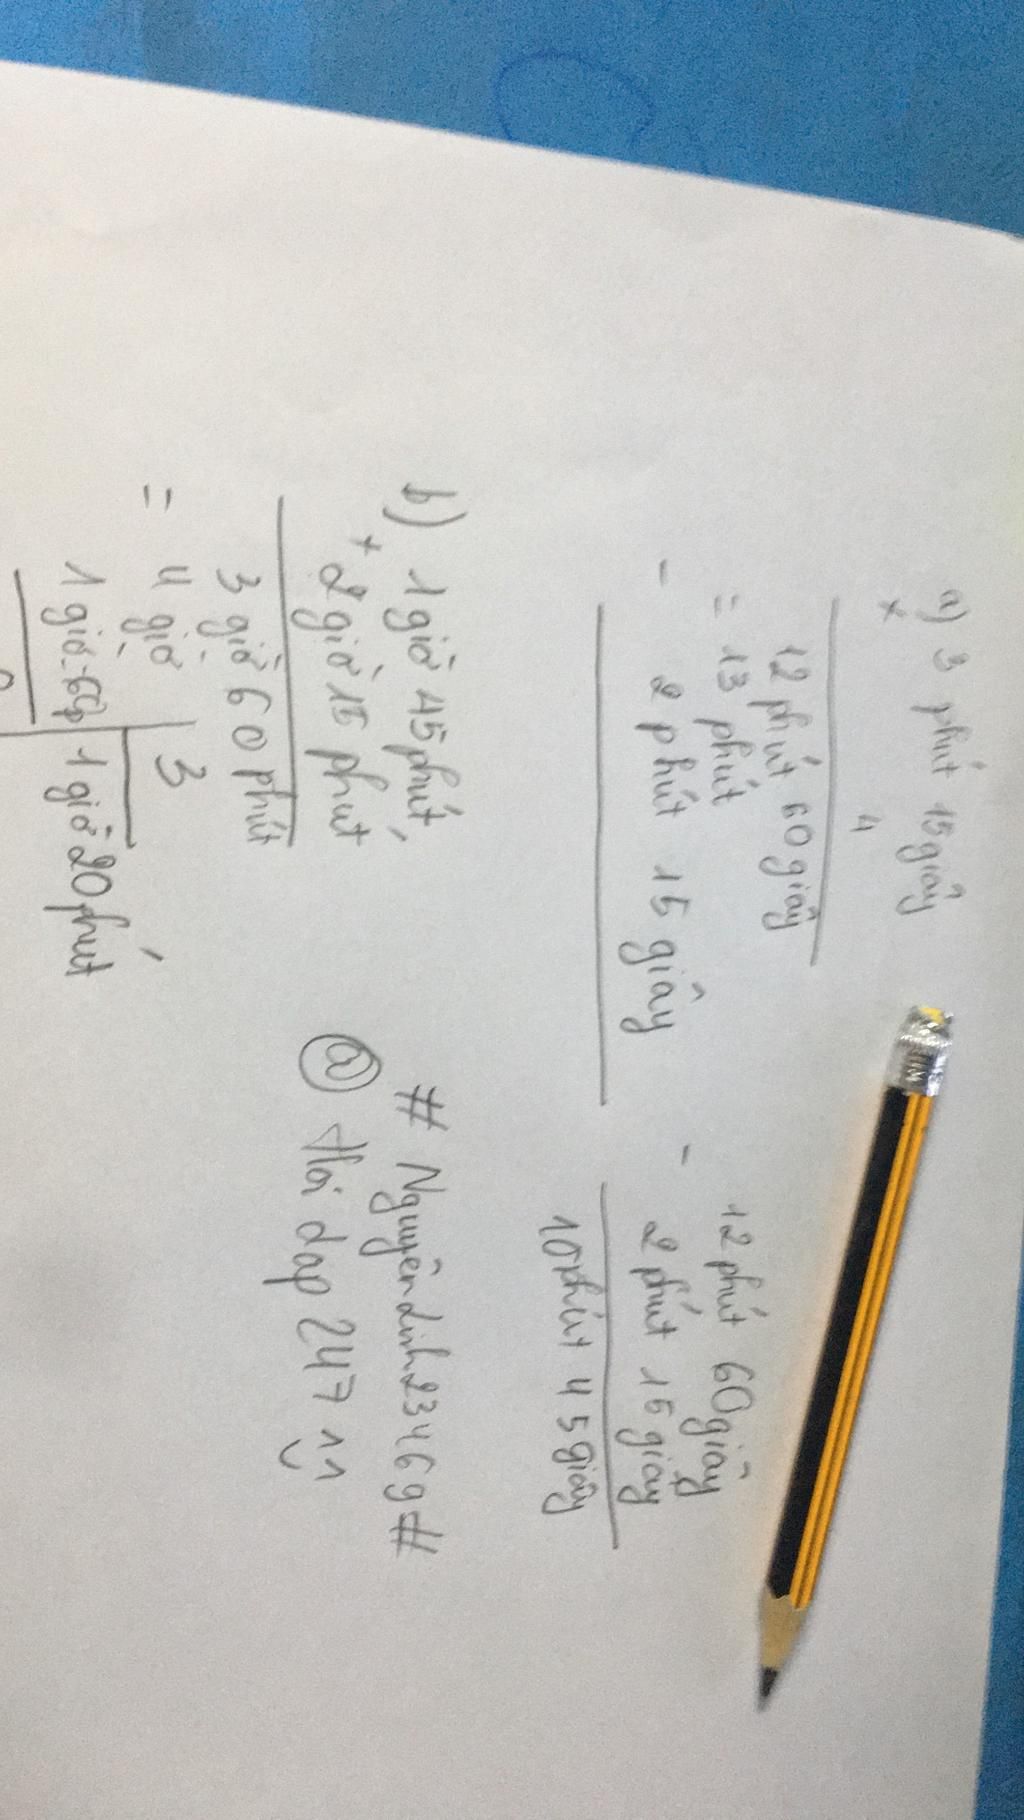 a) 3 phút 15 giây
x 4
12 phút 60 giây
= 13 phút
- 2 phút 15 giây
12 phút 60 giây
- 2 phút 15 giây
10 phút 45 giây
b) 1 giờ 45 phút
+ 2 giờ 15 phut
3 giờ 60 phút
= 4 giờ 3
1 giờ = 60p 1 giờ 20 phút
0
# Nguyễn Linh 23469 #
@ Hỏi dap 247